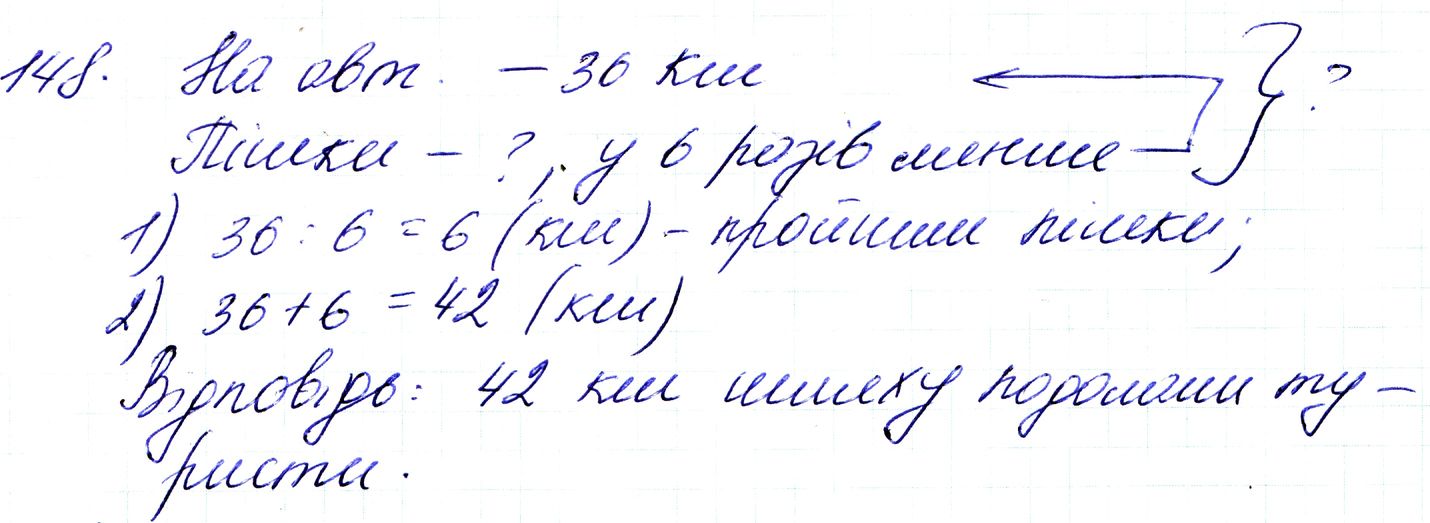 148. На авт. – 36 км ?
Пішки – ?, у 6 разів менше
1) 36 : 6 = 6 (км) – пройшли пішки;
2) 36 + 6 = 42 (км)
Відповідь: 42 км шляху подолали ту-
ристи.